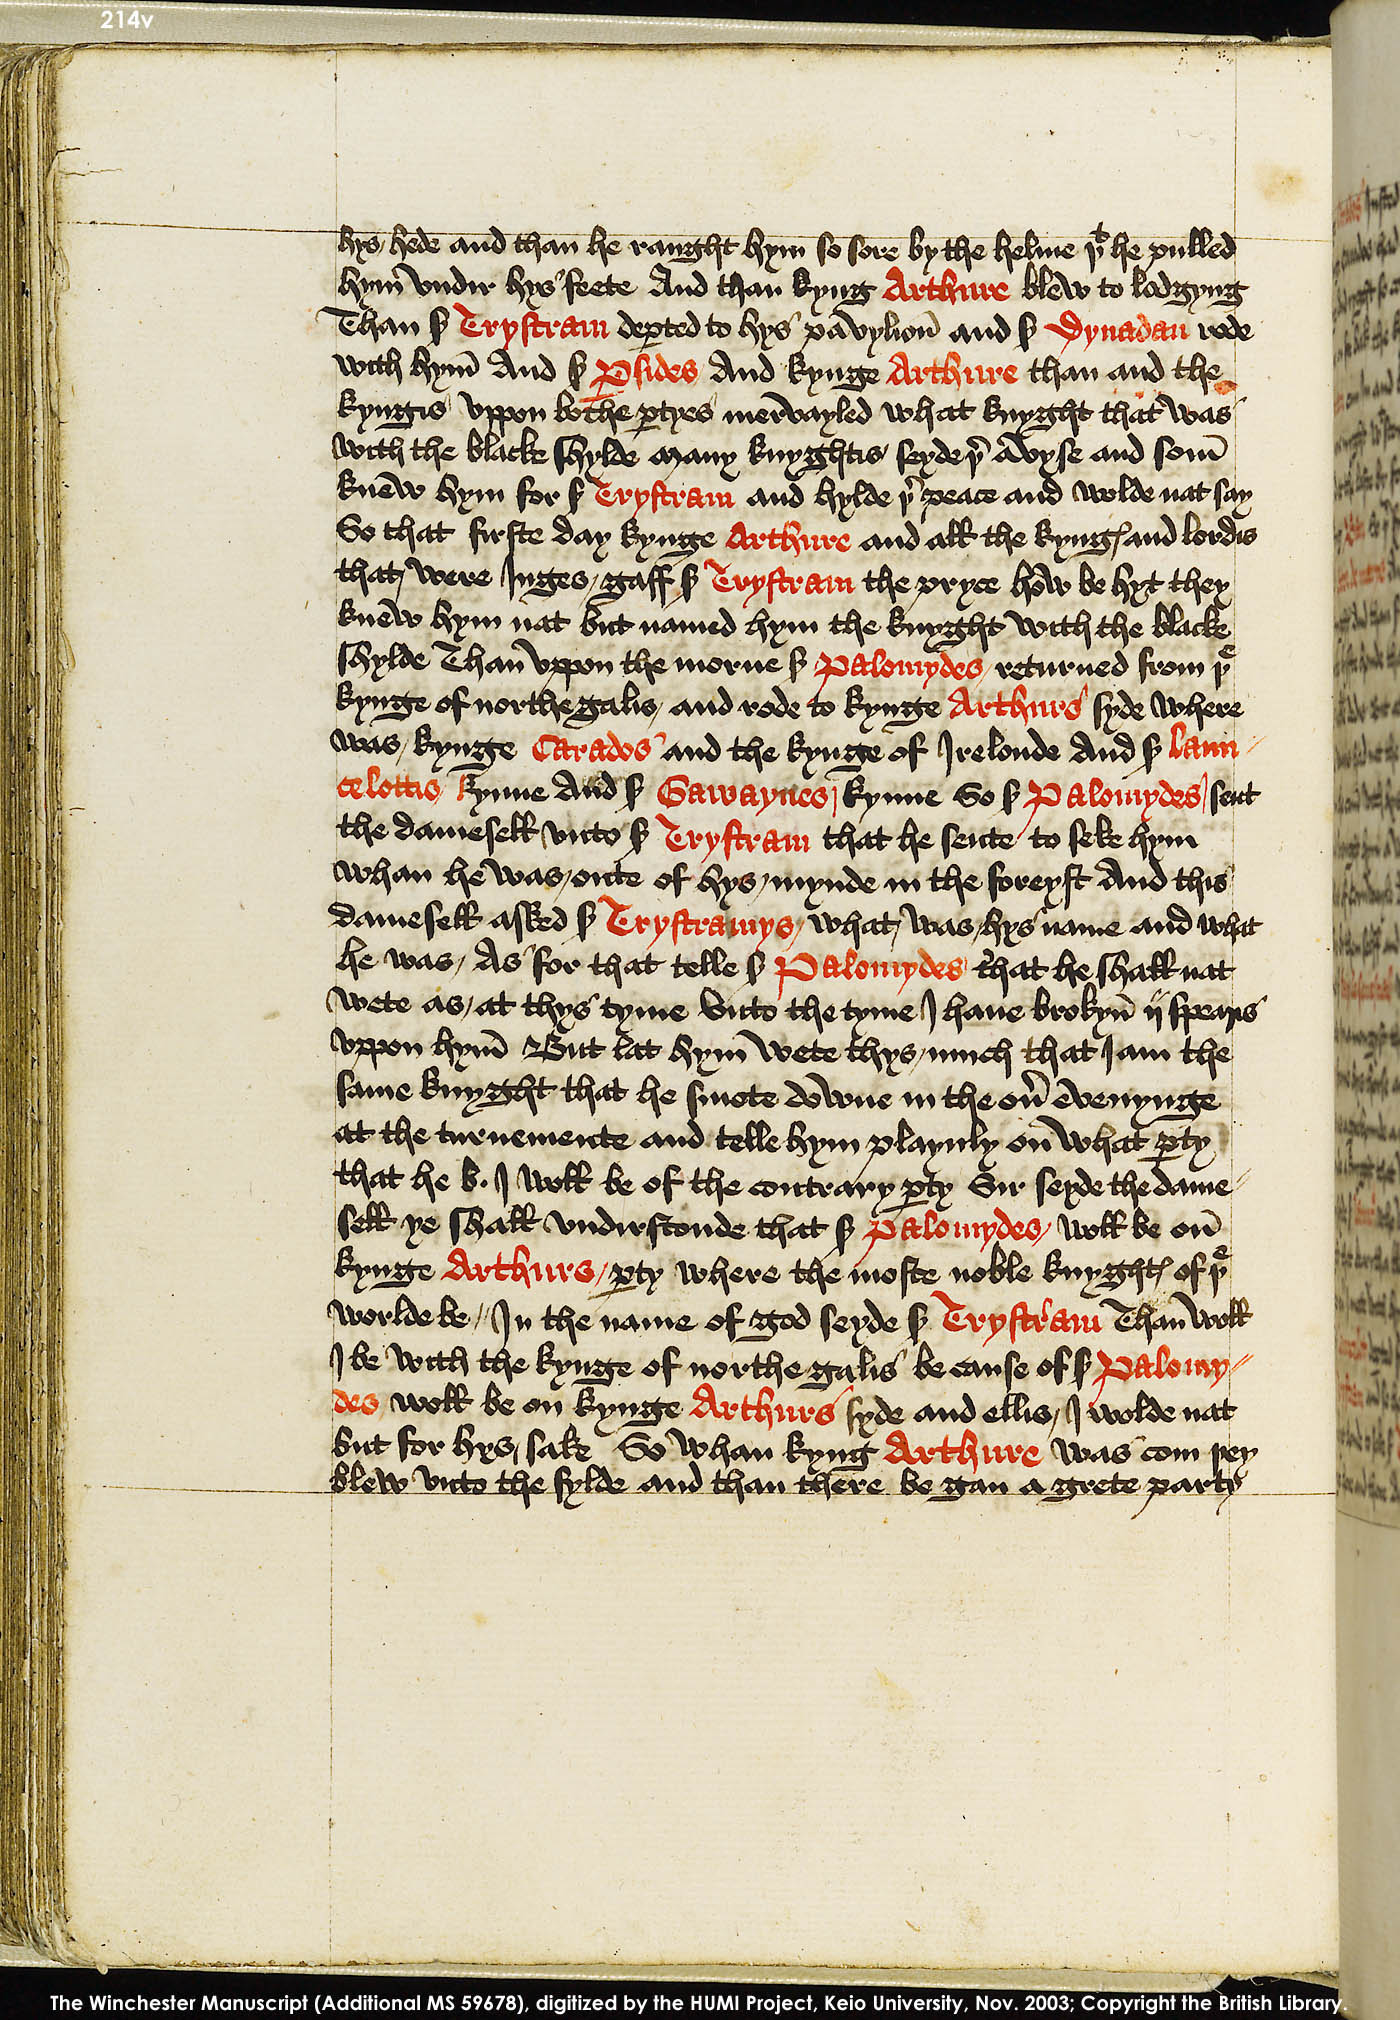 214v
hys hede and than he raught hym so sore by the helme þᵗ he pulled
hym̄ vndir hys feete And than kyng Arthure blew to lodgyng
Than sꝰ Trystram deꝑted to hys pavylion̄ and sꝰ Dynadan rode
with hym̄ And sꝰ Ꝑsides And kynge Arthure than and the
kyngis vppon bothe ꝑtyes mervayled what knyght that was
with the blacke shylde many knyghtis seyde þʳ avyse and som̄
knew hym for sꝰ Trystram and hylde þʳ peace and wolde nat say
So that firste day kynge Arthure and all the kyngꝭ and lordis
that were Juges gaff sꝰ Trystram the pryce how be hyt they
knew hym nat but named hym the knyght with the blacke
shylde Than vppon the morne sꝰ Palomydes returned from þᵉ
kynge of northe galis and rode to kynge Arthurs syde where
was kynge Carados and the kynge of Irelonde And sꝰ laun-
celottis kynne And sꝰ Gawaynes kynne So sꝰ Palomydes sent
the damesell vnto sꝰ Trystram that he sente to seke hym
whan he was oute of hys mynde in the foreyst And this
damesell asked sꝰ Trystramys what was hys name and what
he was As for that telle sꝰ Palomydes that he shall nat
wete as at thys tyme vnto the tyme I haue brokyn̄ ij spearis
vppon hym̄ But lat hym wete thys much that I am the
same knyght that he smote downe in the oūʳ evenynge
at the turnemente and telle hym playnly on̄ what ꝑty
that he b. I woll be of the contrary ꝑty Sir seyde the dame-
sell ye shall vndirstonde that sꝰ Palomydes woll be on̄
kynge Arthurs ꝑty where the moste noble knyghtꝭ of þᵉ
worlde be In the name of god seyde sꝰ Trystram Than woll
I be with the kynge of northe galis be cause of sꝰ Palomy-
des woll be on kynge Arthurs syde and ellis I wolde nat
but for hys sake So whan kyng Arthure was com þey
blew vnto the fylde and than there be gan a grete party
The Winchester Manuscript (Additional MS 59678), digitized by the HUMI Project, Keio University, Nov. 2003; Copyright the British Library.